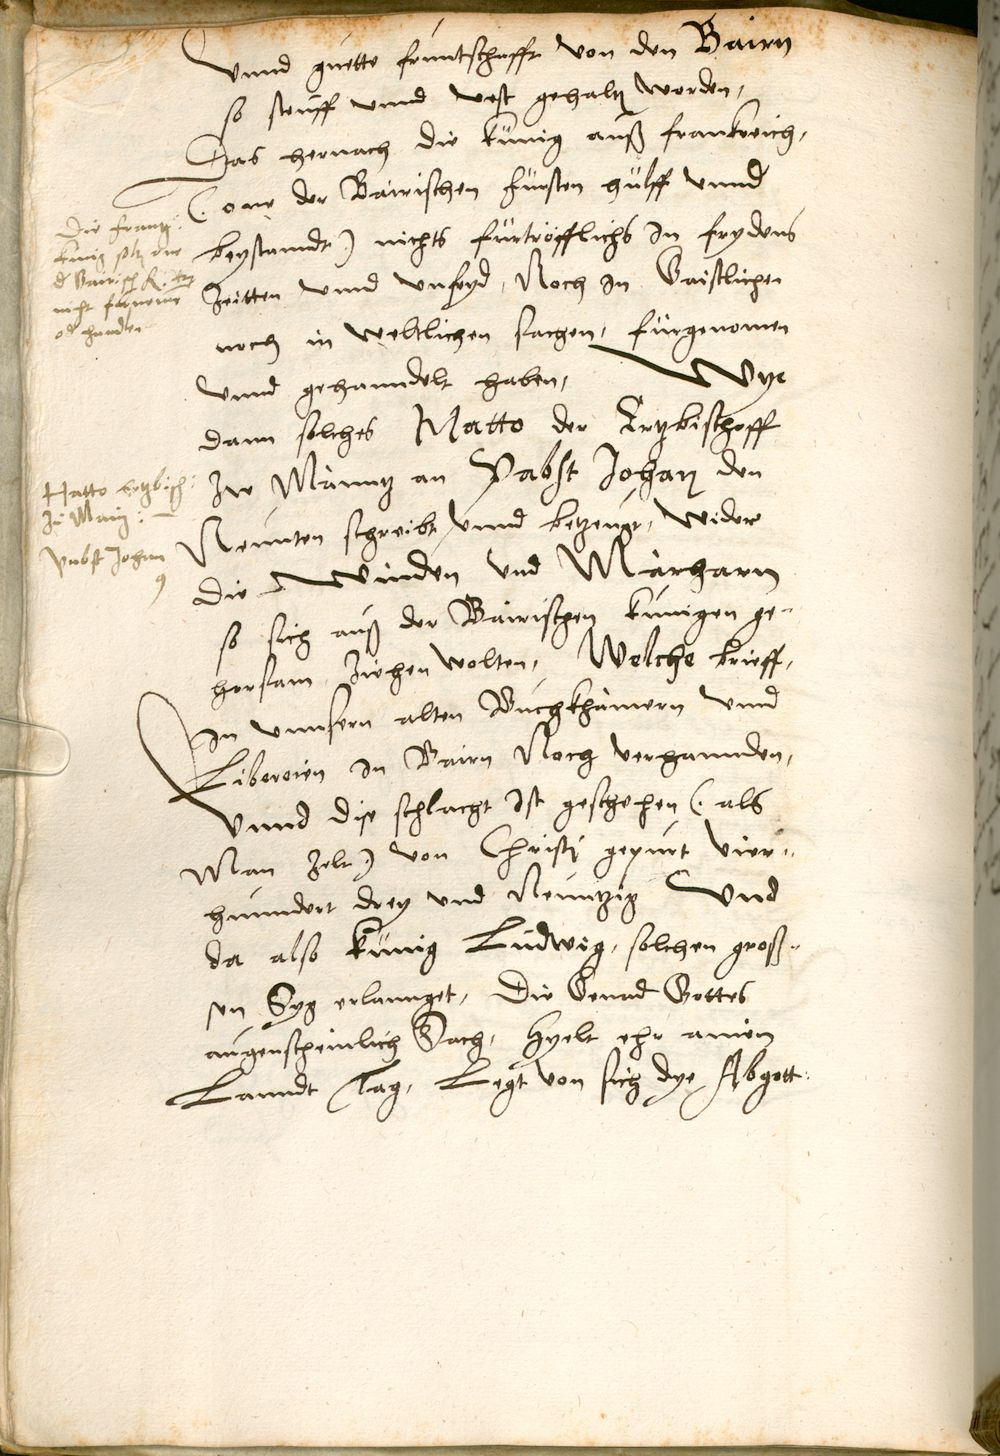 Vnnd guette fruntschafft von den Bairn
so steuff vnnd vest gehaltn worden,
Das hernach die künig auß frankreich,
(. one der Bairischen fürsten hülff vnnd
beystanndt) nichts fürtröfflichs In frydens
Zeitten vnnd vnfryd, Noch in Gaistlichen
noch in weltlichen sachen, fürgenomen
vnnd gehanndelt haben, Wye
dann solches Hatto der Ertzbischoff
Zw Männtz an Pabst Johan den
Neunten schreibt vnnd betzeugt, wider
die Winden vnd Märharn
so sich auß der Bairischen künigen ge-
horsam Ziehen wolten, Welche brieff,
In vnnsern alten Buchkhamern vnnd
Libereien in Bairn Noch verhannden,
Vnnd dise schlacht Ist geschehen (. als
Man Zelt) von Christj gepurt vier-
hunndert drey vnd Neuntzig Vnd
da also künig Ludwig, solchen gross-
sen Syg erlannget, Die Genad Gottes
augenscheinlich Sach, Hyelt ehr ainen
Lanndt Tag, Legt von sich dye Abgott:
Die frantz:
künig
d Bairisch
nicht fürneme
od handlen
Hatto ertzbisch:
Zu Mainz:
Pabst Johan
9